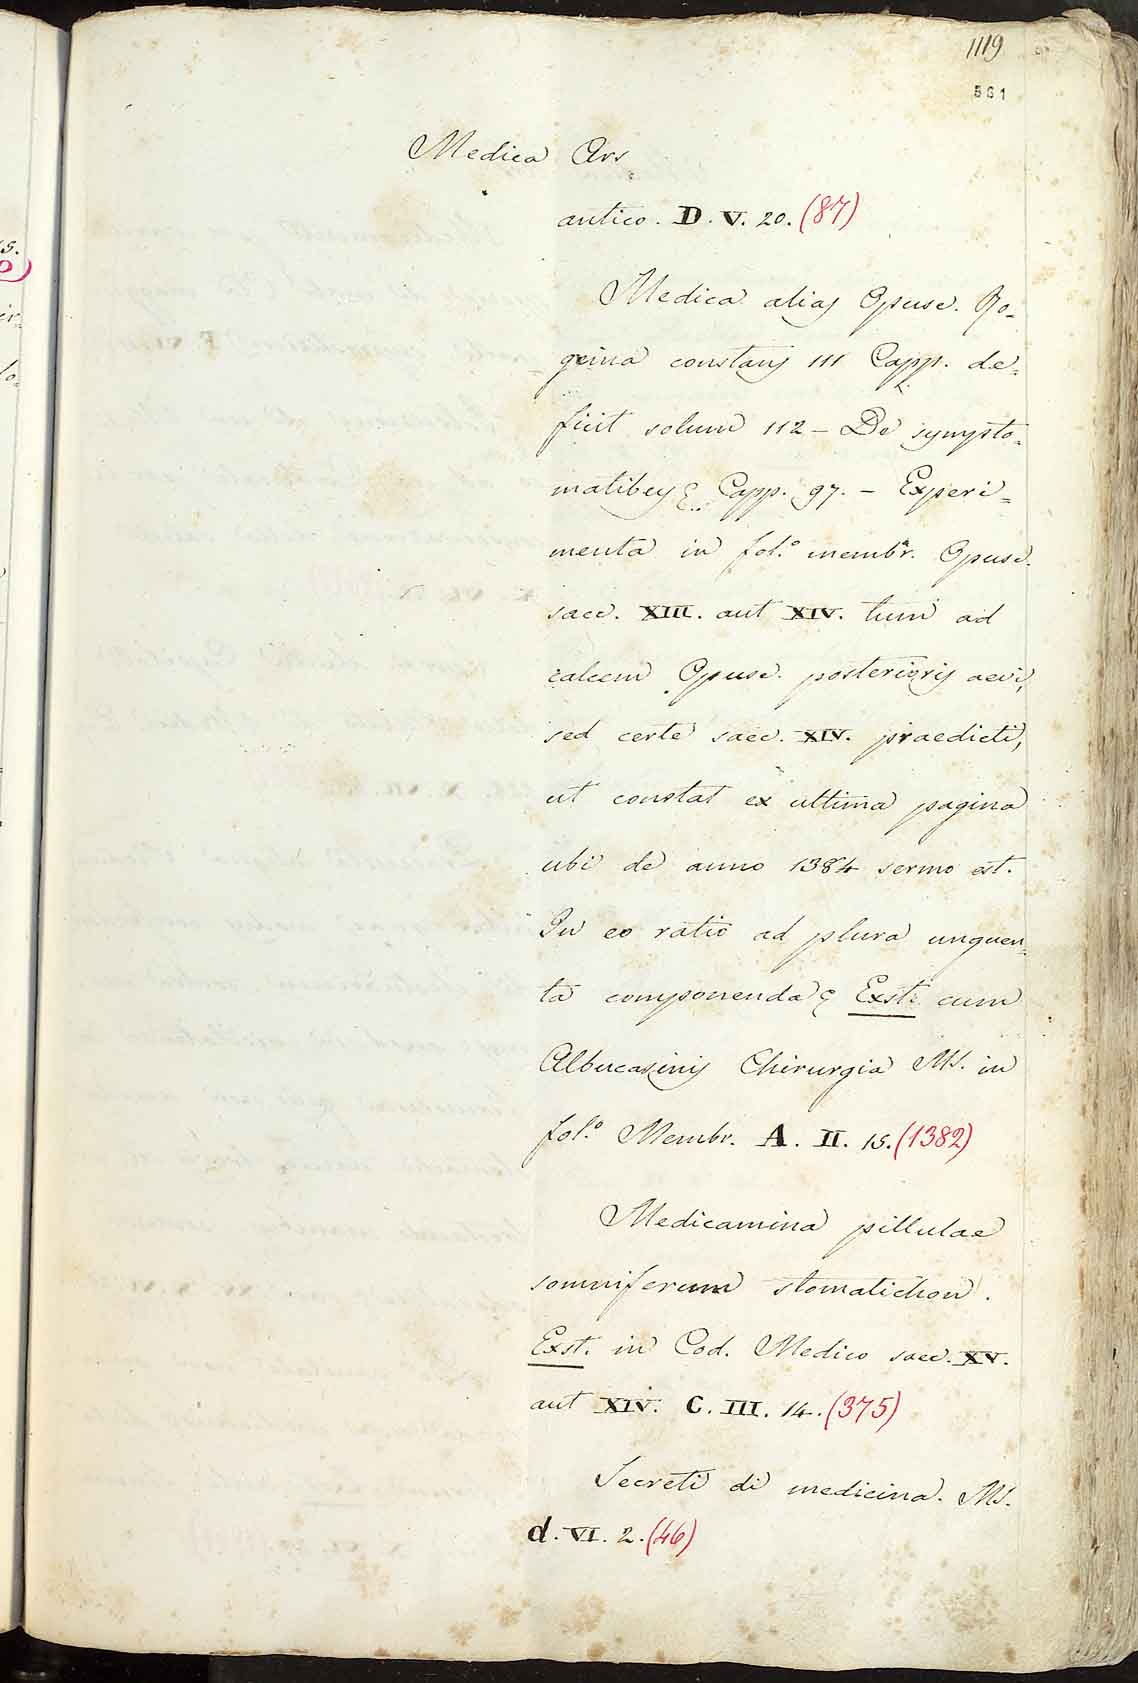 1119
561
Medica Ars
antico. D. V. 20. (87)
Medica alias Opusc. Ro-
gerina constans 111 Capp. de-
ficit solum 112 - De sympto-
matibus & Capp. 97. - Experi-
menta in fol.º membr. Opusc.
saec. XIII. aut XIV. tum ad
calcem Opusc. posterioris aevi,
sed certe saec. XIV. praedicti,
ut constat ex ultima pagina
ubi de anno 1384 sermo est.
In eo ratio ad plura unguen-
ta componenda & Exst. cum
Albucasinis Chirurgia MS. in
fol.º Membr. A. II. 15. (1382)
Medicamina pillulae
somniferum stomatichon.
Exst. in Cod. Medico saec. XV.
aut XIV. C. III. 14. (375)
Secreti di medicina. MS.
d. VI. 2. (46)